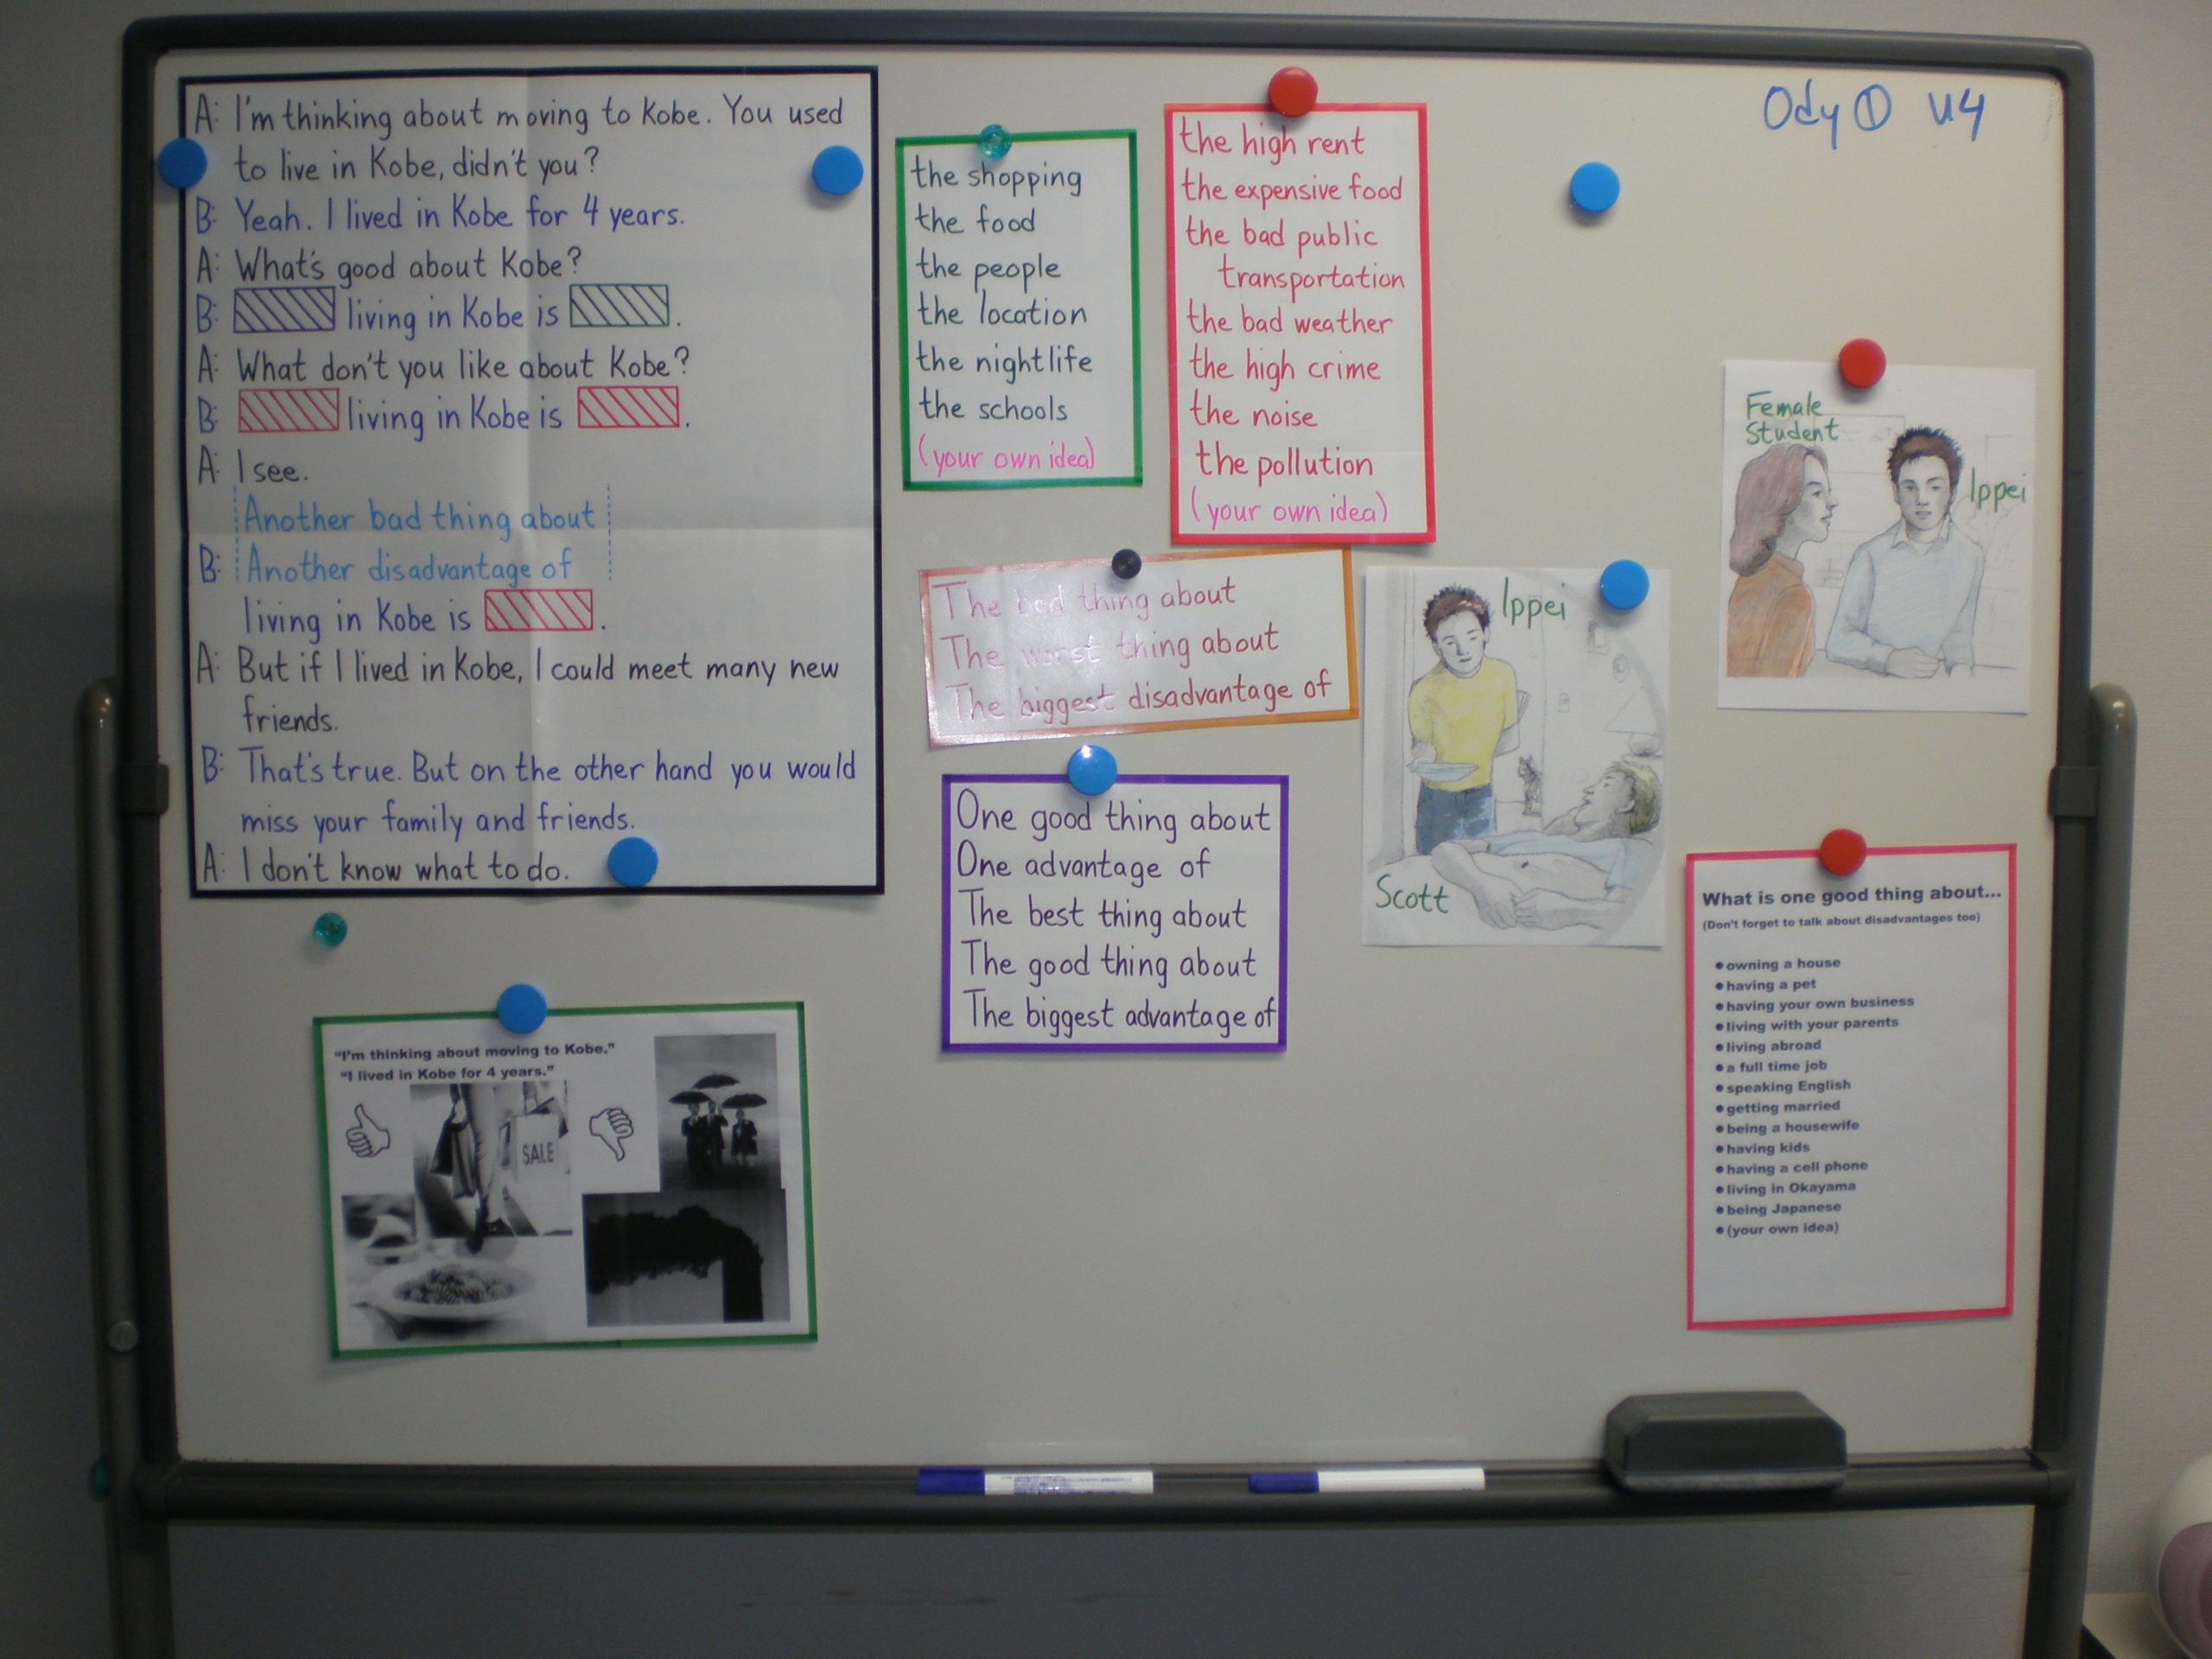 A: I'm thinking about moving to Kobe. You used
to live in Kobe, didn't you?
B: Yeah. I lived in Kobe for 4 years.
A: What's good about Kobe?
B: living in Kobe is .
A: What don't you like about Kobe?
B: living in Kobe is .
A: I see.
Another bad thing about
B: Another disadvantage of
living in Kobe is .
A: But if I lived in Kobe, I could meet many new
friends.
B: That's true. But on the other hand you would
miss your family and friends.
A: I don't know what to do.
the shopping
the food
the people
the location
the nightlife
the schools
(your own idea)
the high rent
the expensive food
the bad public
transportation
the bad weather
the high crime
the noise
the pollution
(your own idea)
Ody ① U4
The bad thing about
The worst thing about
The biggest disadvantage of
One good thing about
One advantage of
The best thing about
The good thing about
The biggest advantage of
Ippei
Scott
Female
Student
Ippei
"I'm thinking about moving to Kobe."
"I lived in Kobe for 4 years."
SALE
What is one good thing about...
(Don't forget to talk about disadvantages too)
• owning a house
• having a pet
• having your own business
• living with your parents
• living abroad
• a full time job
• speaking English
• getting married
• being a housewife
• having kids
• having a cell phone
• living in Okayama
• being Japanese
• (your own idea)